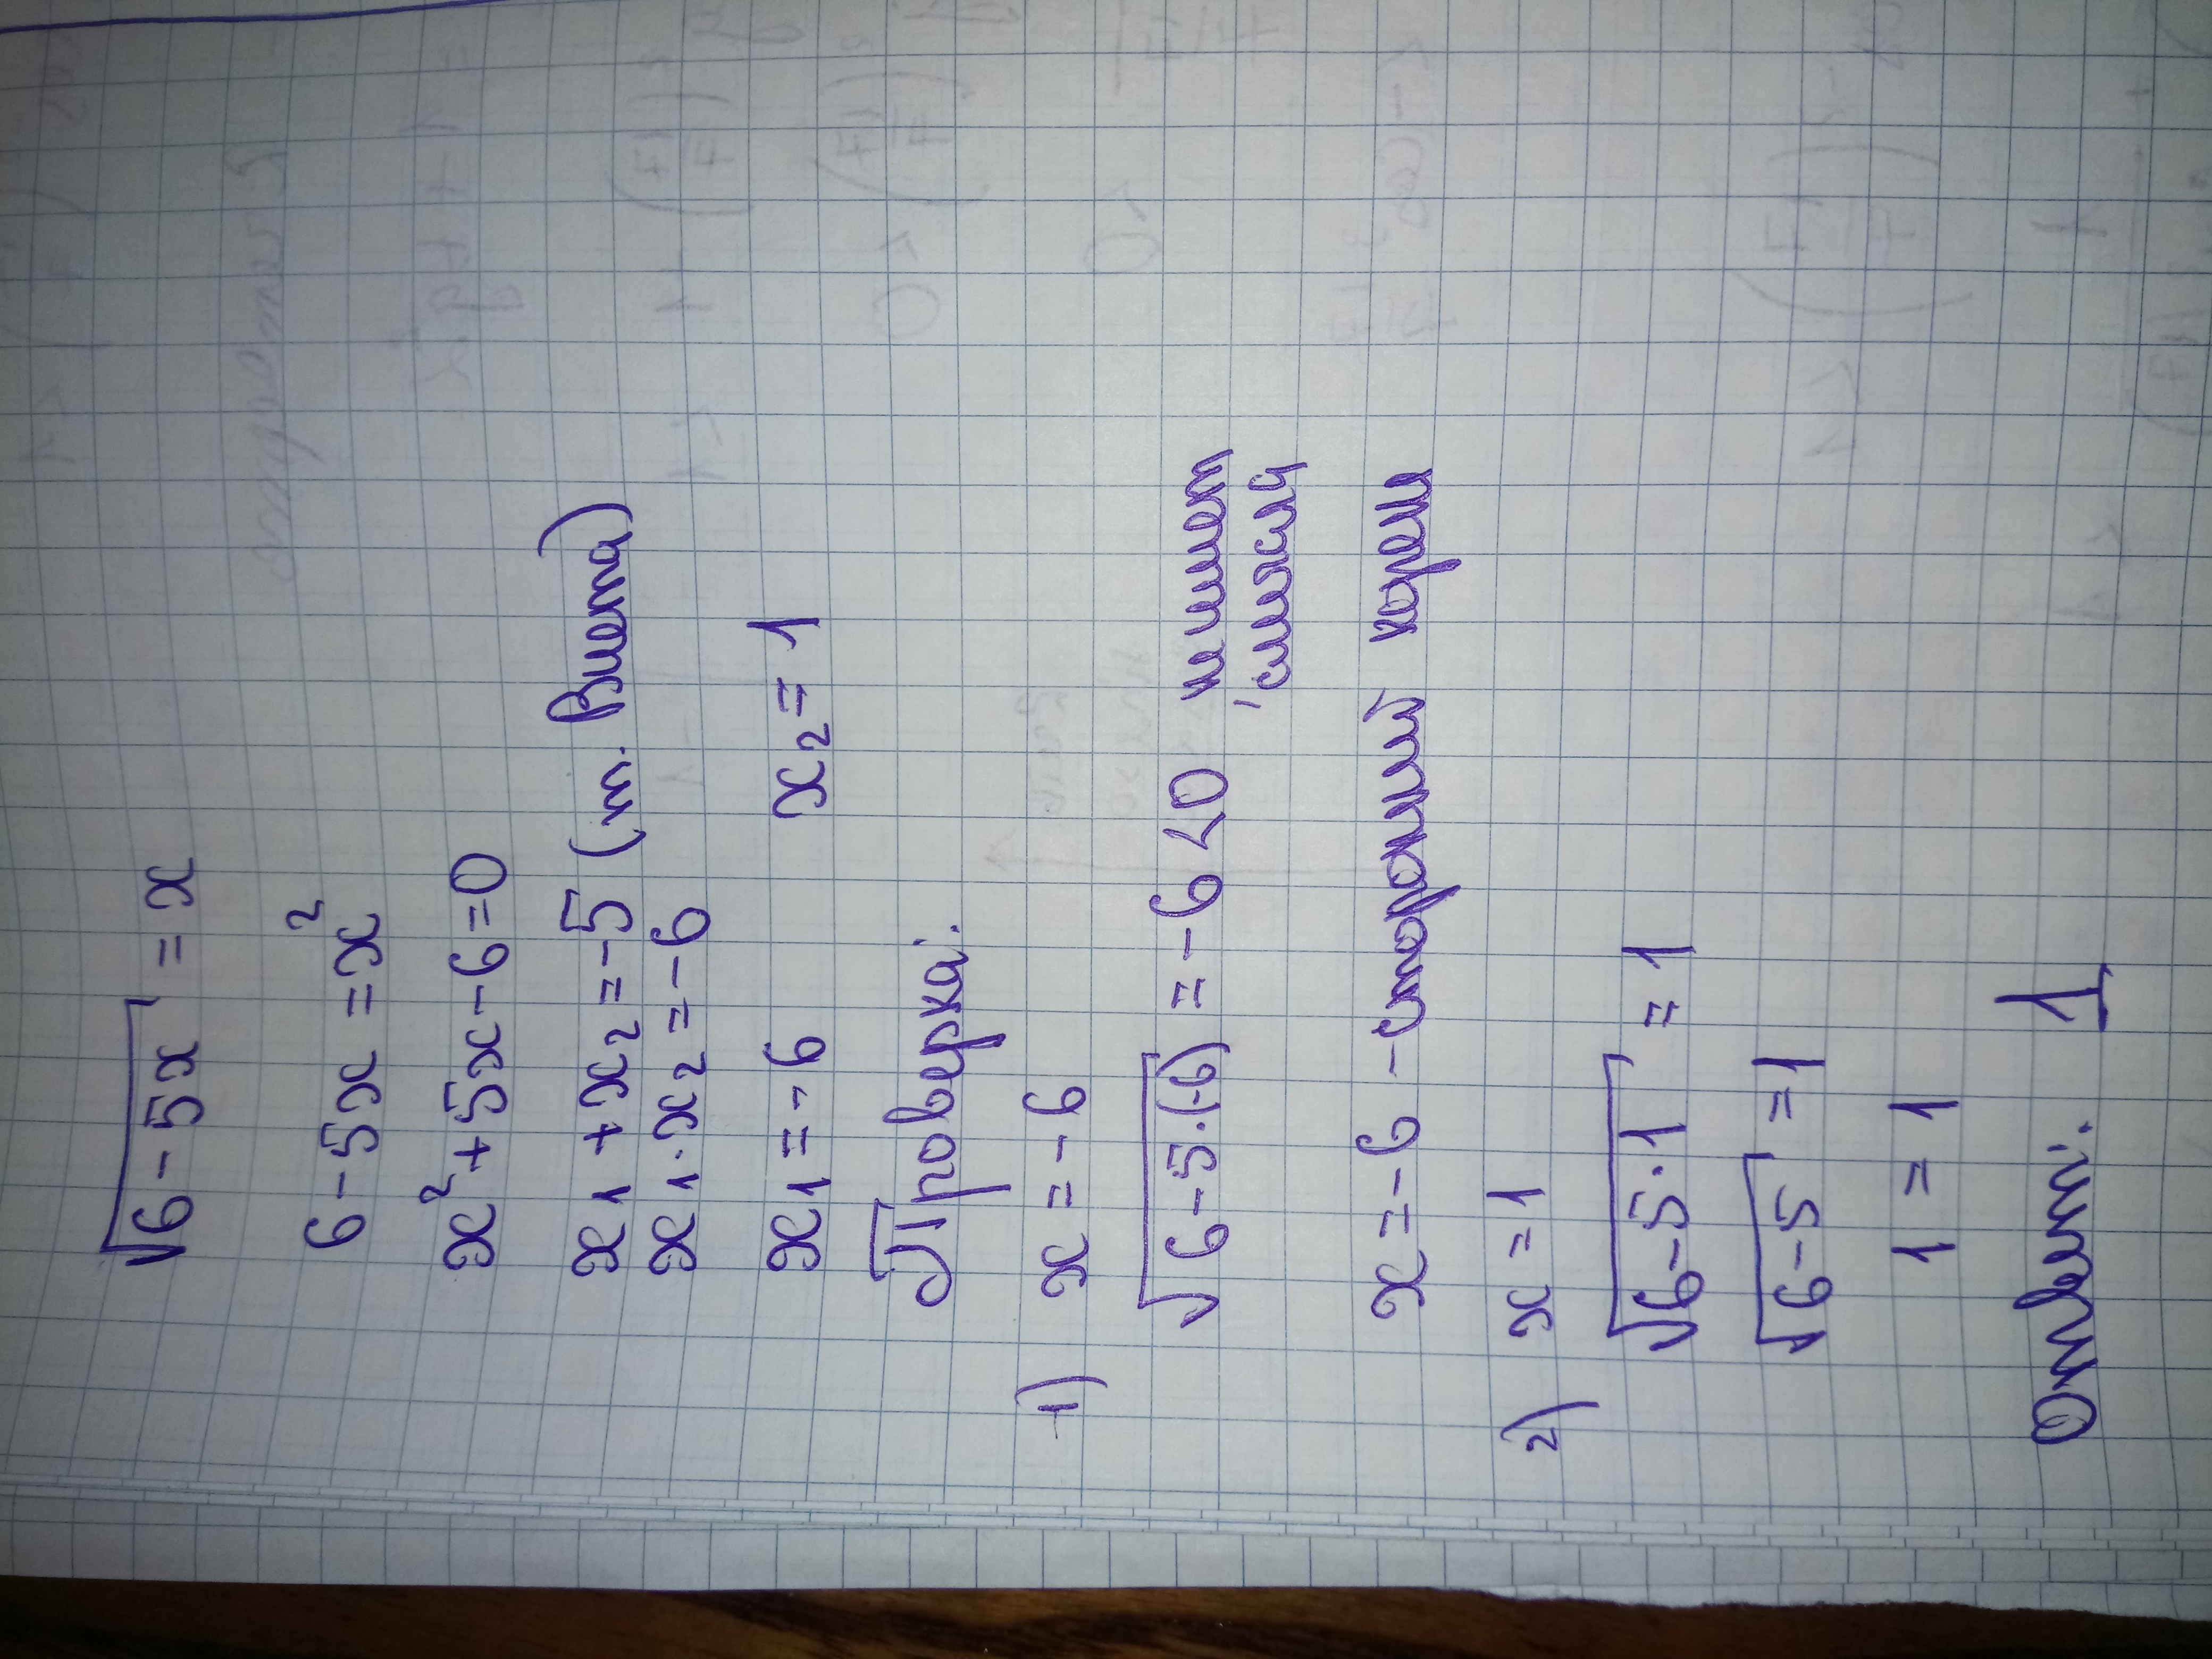 √(6-5x) = x
6-5x = x²
x²+5x-6=0
x₁+x₂=-5 (т. Виета)
x₁·x₂=-6
x₁=-6 x₂=1
Проверка:
1) x=-6
√(6-5·(-6)) = -6 <0, не имеет
смысла
x=-6 - сторонний корень
2) x=1
√(6-5·1) = 1
√(6-5) =1
1 = 1
Ответ: 1